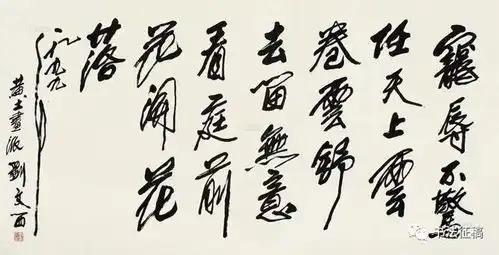 寵辱不驚
任天上雲
卷雲舒
去留無意
看庭前
花開花
落
一九九八
黄土畫派劉文西
书法征稿